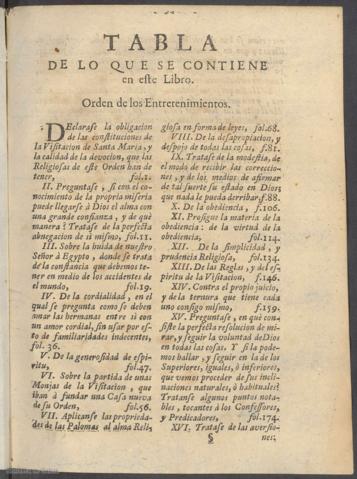 TABLA
DE LO QUE SE CONTIENE
en este Libro.
Orden de los Entretenimientos.
DEclarase la obligacion
de las constituciones de
la Visitacion de Santa Maria, y
la calidad de la devocion, que las
Religiosas de este Orden han de
tener, fol.1.
II. Preguntase, si con el co-
nocimiento de la propria miseria
puede llegarse à Dios el alma con
una grande confianza, y de què
manera? Tratase de la perfecta
abnegacion de si mismo, fol.11.
III. Sobre la huida de nuestro
Señor à Egypto, donde se trata
de la constancia que debemos te-
ner en medio de los accidentes de
el mundo, fol.19.
IV. De la cordialidad, en el
qual se pregunta como se deben
amar las hermanas entre si con
un amor cordial, sin usar por es-
to de familiaridades indecentes,
fol. 36.
V. De la generosidad de espi-
ritu, fol.47.
VI. Sobre la partida de unas
Monjas de la Visitacion, que
iban à fundar una Casa nueva
de su Orden, fol.56.
VII. Aplicanse las proprieda-
des de las Palomas al alma Reli-
giosa en forma de leyes, fol.68.
VIII. De la desapropiacion, y
despojo de todas las cosas, f.81.
IX. Tratase de la modestia, de
el modo de recibir las correccio-
nes, y de los medios de afirmar
de tal suerte su estado en Dios,
que nada le pueda derribar. f.88.
X. De la obediencia, f.106.
XI. Prosigue la materia de la
obediencia: de la virtud de la
obediencia, fol.114.
XII. De la simplicidad, y
prudencia Religiosa, fol.134.
XIII. De las Reglas, y del es-
piritu de la Visitacion, f.146.
XIV. Contra el propio juicio,
y de la ternura que tiene cada
uno consigo mismo, f.159.
XV. Preguntase, en què con-
siste la perfecta resolucion de mi-
rar, y seguir la voluntad de Dios
en todas las cosas. Y si la pode-
mos hallar, y seguir en la de los
Superiores, iguales, ò inferiores,
que vemos proceder de sus incli-
naciones naturales, ò habituales?
Tratanse algunos puntos nota-
bles, tocantes à los Confessores,
y Predicadores, fol.174.
XVI. Tratase de las aversio-
§ nes,